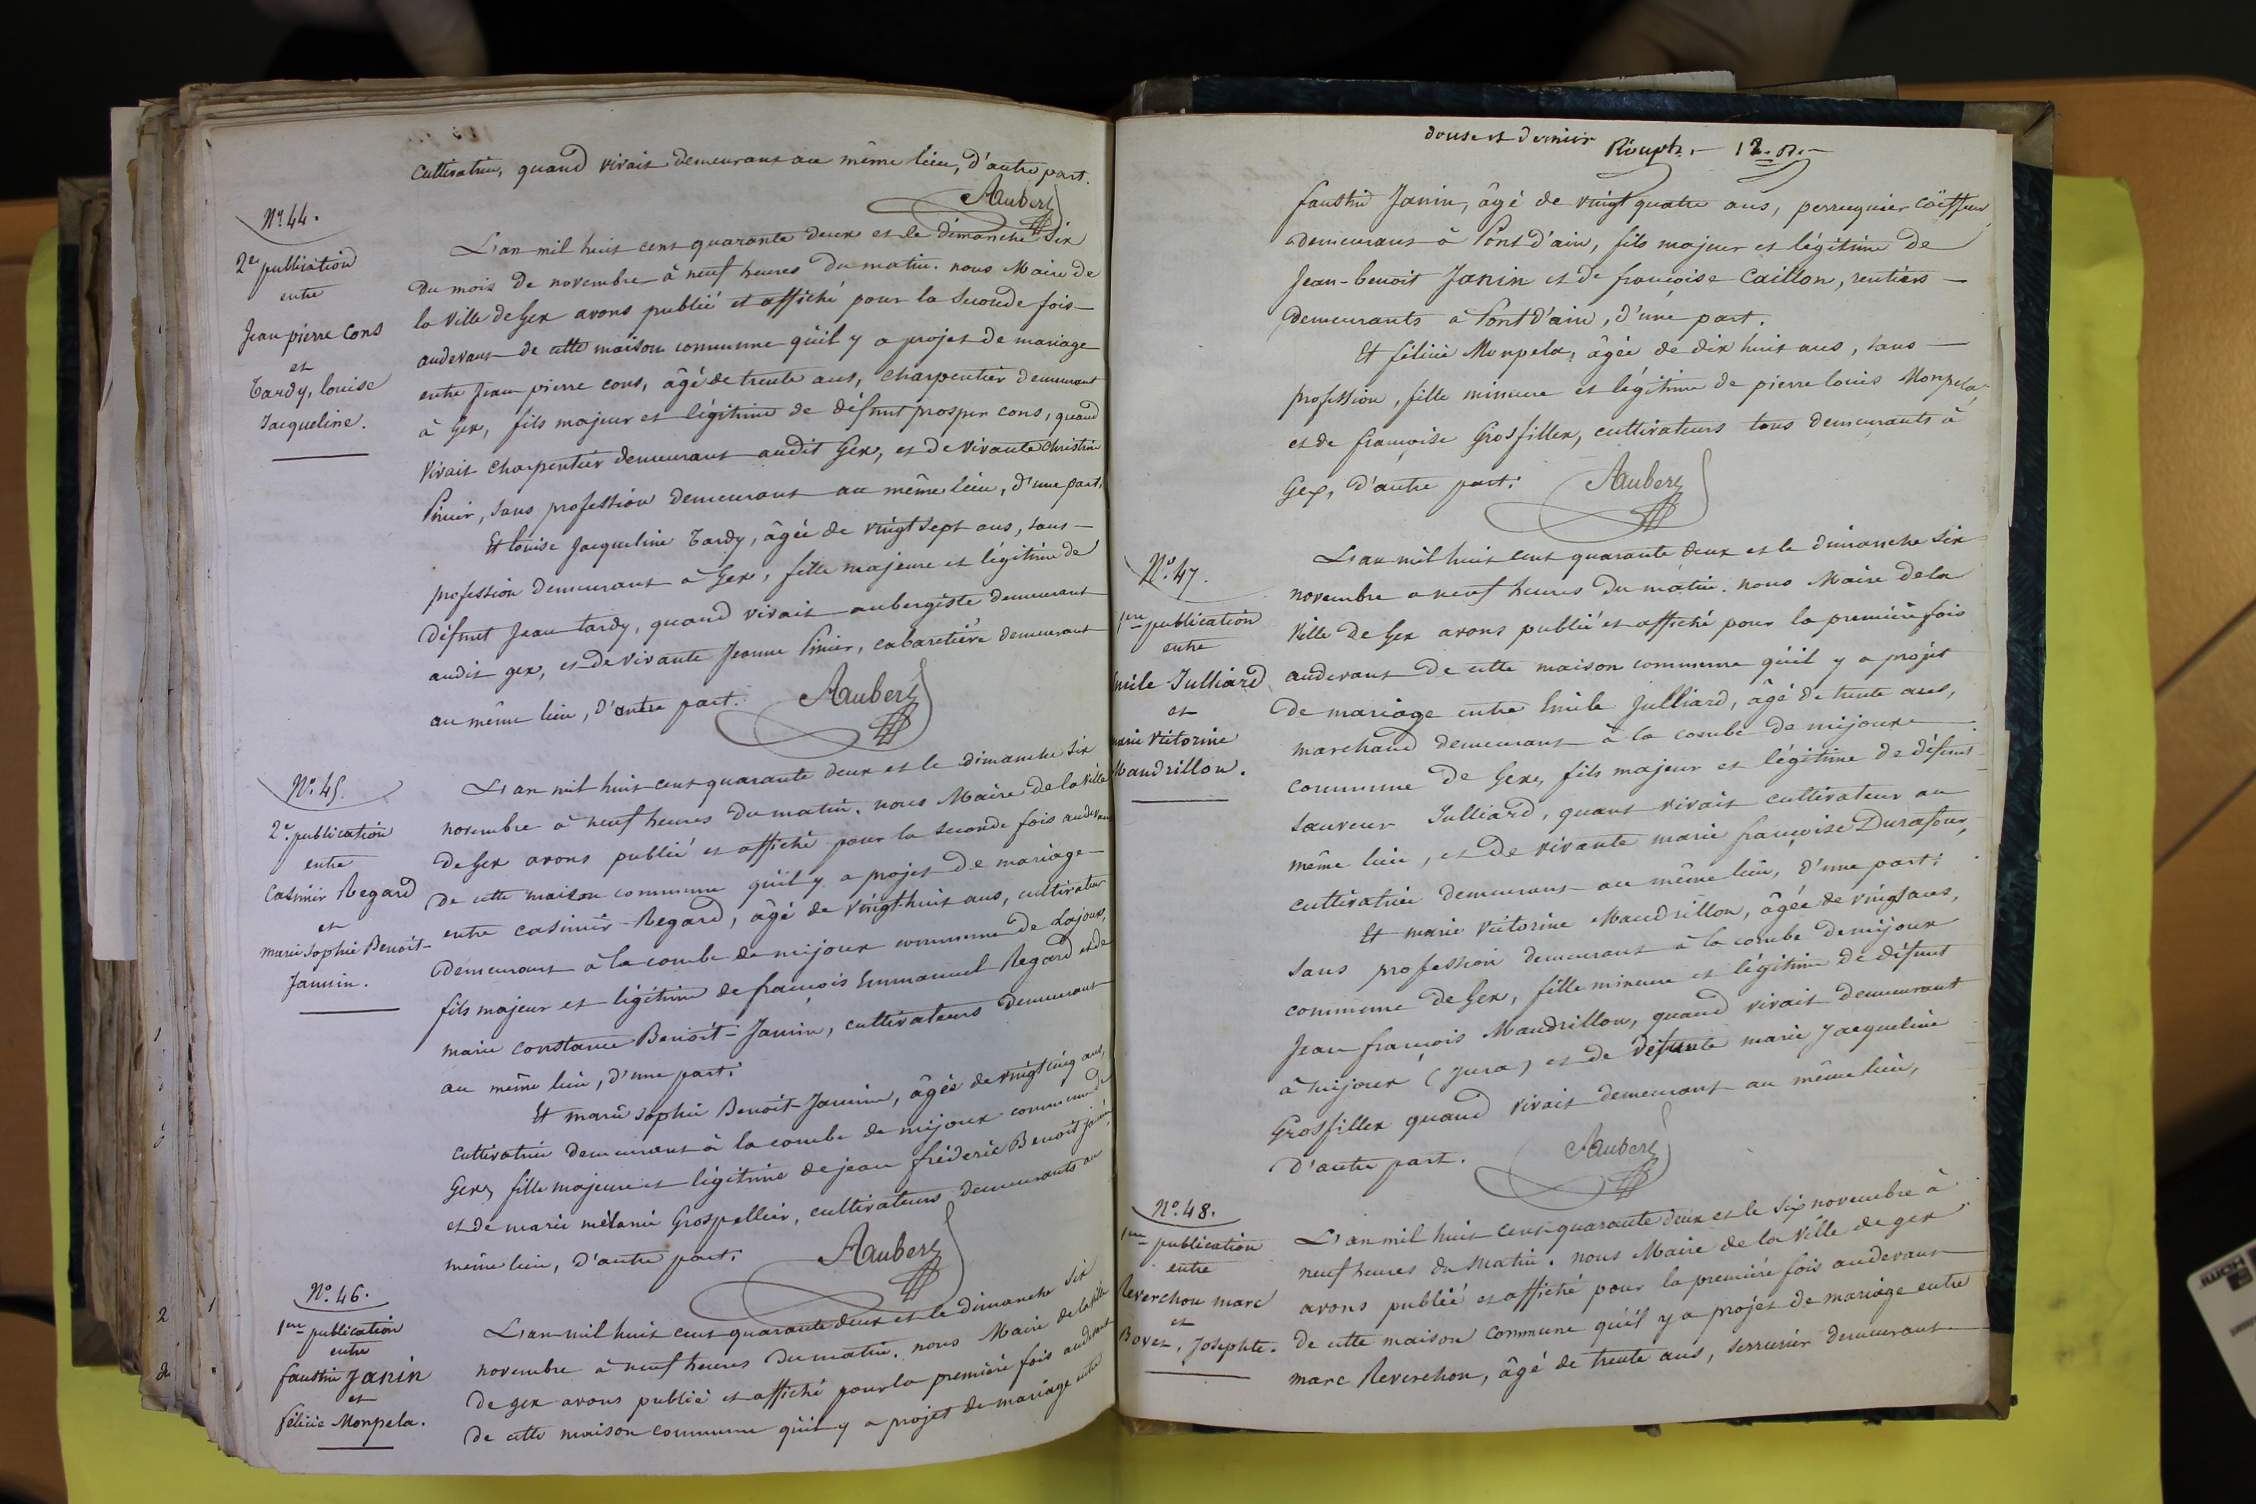 cultivatrice, quand vivait demeurant au même lieu, d'autre part.
Aubert
Nº 44.
2e publication
entre
Jean pierre Cons
et
Tardy, louise
Jacqueline.
L'an mil huit cent quarante deux et le dimanche Six
du mois de novembre à neuf heures du matin. nous Maire de
la Ville de Gex avons publié et affiché pour la Seconde fois
audevant de cette maison commune qu'il y a projet de mariage
entre Jean pierre cons, âgé de trente ans, charpentier demeurant
à Gex, fils majeur et légitime de défunt prosper cons, quand
vivait charpentier demeurant audit Gex, et de vivante christine
Pinier, sans profession demeurant au même lieu, d'une part,
Et louise Jacqueline Tardy, âgée de vingt sept ans, sans
profession demeurant à Gex, fille majeure et légitime de
défunt Jean tardy, quand vivait aubergiste demeurant
audit gex, et de vivante Jeanne Pinier, cabaretière demeurant
au même lieu, d'autre part.
Aubert
Nº 45.
2e publication
entre
Casimir Regard
et
marie Sophie Benoit-
Jannin.
L'an mil huit cent quarante deux et le dimanche Six
novembre à neuf heures du matin. nous Maire de la ville
de Gex avons publié et affiché pour la seconde fois audevant
de cette maison commune qu'il y a projet de mariage
entre casimir Regard, âgé de vingt huit ans, cultivateur
demeurant à la combe de mijoux commune de Lajoux,
fils majeur et légitime de françois Emmanuel Regard et de
marie constance Benoit-Jannin, cultivateurs demeurant
au même lieu, d'une part.
Et marie sophie Benoit-Jannin, âgée de vingt cinq ans,
cultivatrice demeurant à la combe de mijoux commune de
Gex, fille majeure et légitime de jean fréderic Benoit Jannin
et de marie mélanie Grospellier, cultivateurs demeurants au
même lieu, d'autre part.
Aubert
Nº 46.
1ere publication
entre
faustin Janin
et
félicie Monpela.
L'an mil huit cent quarante deux et le dimanche six
novembre à neuf heures du matin. nous Maire de la ville
de gex avons publié et affiché pour la première fois audevant
de cette maison commune qu'il y a projet de mariage entre
douze et dernier
faustin Janin, âgé de vingt quatre ans, perruquier coëffeur,
demeurant à Pont d'ain, fils majeur et légitime de
Jean-benoit Janin et de françoise Caillon, rentiers
demeurants à Pont d'ain, d'une part.
Et félicie Monpela, âgée de dix huit ans, sans
profession, fille mineure et légitime de pierre louis Monpela,
et de françoise Grosfillex, cultivateurs tous demeurants à
Gex, d'autre part.
Aubert
Nº 47.
1ere publication
entre
Emile Julliard
et
marie Victorine
Mandrillon.
L'an mil huit cent quarante deux et le dimanche six
novembre a neuf heures du matin. nous Maire de la
Ville de Gex avons publié et affiché pour la première fois
audevant de cette maison commune qu'il y a projet
de mariage entre Emile Julliard, âgé de trente ans,
marchand demeurant à la combe de mijoux
commune de Gex, fils majeur et légitime de défunt
sauveur Julliard, quant vivait cultivateur au
même lieu, et de vivante marie françoise Durafour,
cultivatrice demeurant au même lieu, d'une part.
Et marie victorine Mandrillon, âgée de vingt ans,
sans profession demeurant à la combe de mijoux
commune de Gex, fille mineure et légitime de défunt
Jean françois Mandrillon, quand vivait demeurant
à mijoux (Jura) et de défunte marie Jacqueline
Grosfillex quand vivait demeurant au même lieu,
d'autre part.
Aubert
Nº 48.
1ere publication
entre
Reverchon marc
et
Bovet, Josephte.
L'an mil huit cent quarante deux et le six novembre à
neuf heures du matin. nous Maire de la Ville de gex
avons publié et affiché pour la première fois audevant
de cette maison commune qu'il y a projet de mariage entre
marc Reverchon, âgé de trente ans, serrurier demeurant